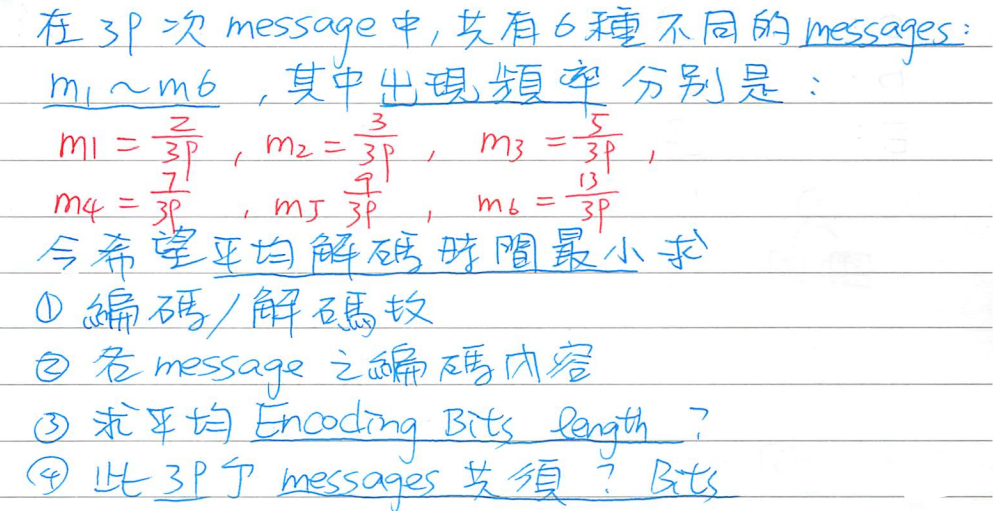 在 39 次 message 中, 共有 6 種不同的 messages:
m1 ~ m6 , 其中出現頻率分別是 :
m1 = 2/39 , m2 = 3/39 , m3 = 5/39 ,
m4 = 7/39 , m5 9/39 , m6 = 13/39
今希望平均解碼時間最小求
① 編碼/解碼樹
② 各 message 之編碼內容
③ 求平均 Encoding Bits length ?
④ 此 39 個 messages 共須 ? Bits